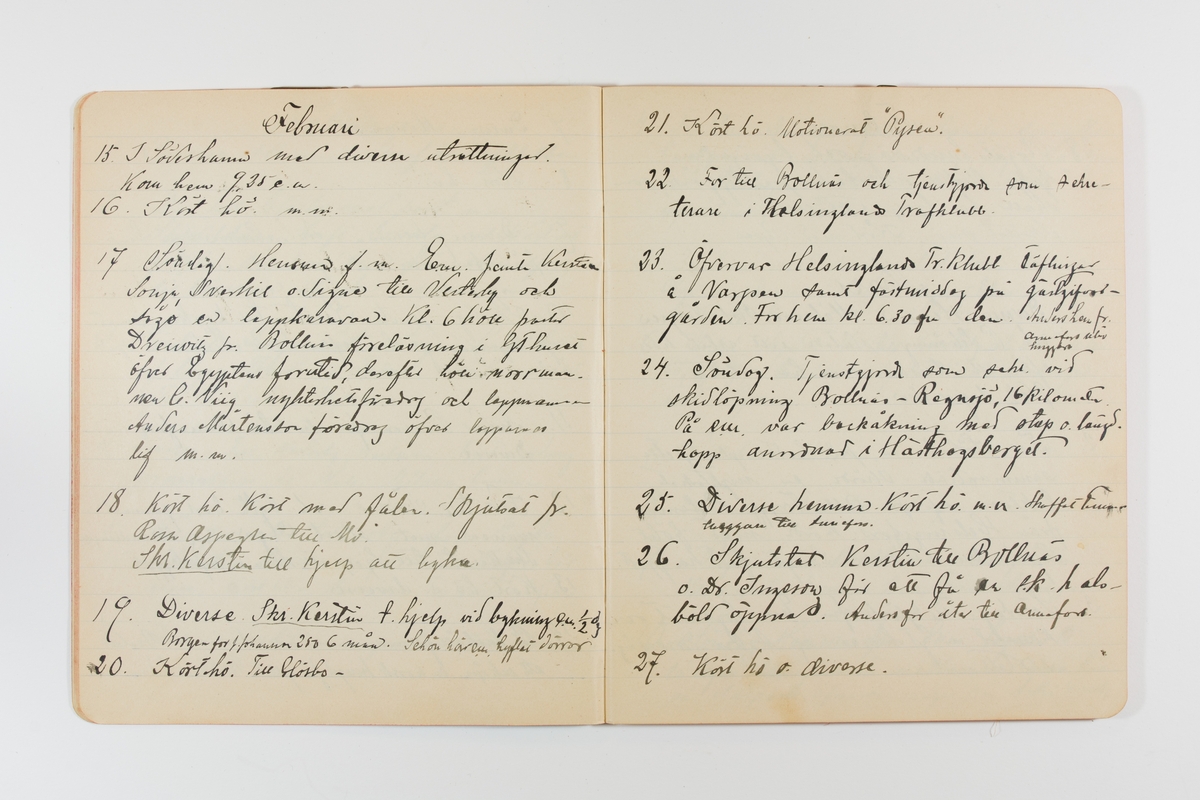 Februari
15. I Söderhamn med diverse uträttningar.
Kom hem 9,35 e.m.
16. Kört hö. m.m.
17 Söndag. Hemma f.m. Em. jemte Kerstin
Sonja, Sverkil o. Signe till Vesterby och
sågo en lappkaravan. Kl. 6 höll pastor
fr. Bollnäs föreläsning i Gthuset
öfver Egyptens forntid, derefter höll norrman-
nen C. Viig nykterhetsföredrag och lappmannen
Anders Mårtensson föredrag öfver lapparnas
lif m.m.
18. Kört hö. Kört med fålen. Skjutsat fr.
Rosa Aspegren till Mo.
Skr. Kerstin till hjelp att byka.
19. Diverse. Skr. Kerstin t. hjelp vid bykning e.m. ½ dg
Borgen for f Johannes 250 6 mån. Schön här em, hyflat dörrar
20. Kört hö. Till Glösbo -
21. Kört hö. Motionerat "Pysen".
22 For till Bollnäs och tjenstgjorde som sekre-
terare i Helsinglands Trafklubb.
23. Öfvervar Helsinglands Tr. klubb täflingar
å Varpen samt festmiddag på gästgifvar-
gården. For hem kl. 6.30 fm den. Anders hem fr.
Annefors utöv
huggare
24. Söndag. Tjenstgjorde som sekr. vid
skidlöpning Bollnäs - Regnsjö, 16 kilometer.
På em. var backåkning med stup o. längd-
hopp anordnad i Hästhagsberget.
25. Diverse hemma. Kört hö. m.m. Skaffat timmer
huggare till Annefors.
26. Skjutsat Kerstin till Bollnäs
o. Dr. Ingeson för att få en sk. hals-
böld öppnad. Anders for åter till Annefors.
27. Kört hö o. diverse.